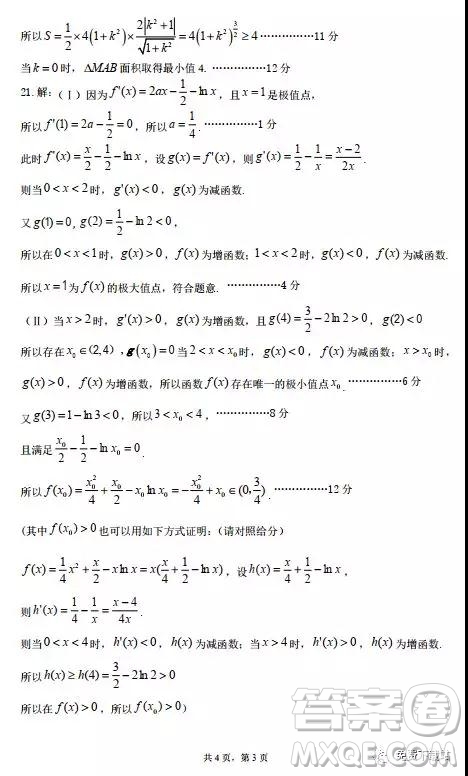 所以 S = 1/2 × 4(1+k²) × 2|k²+1|/√(1+k²) = 4(1+k²)^(3/2) ≥ 4 ……………11 分
当 k = 0 时，ΔMAB 面积取得最小值 4. ……………12 分
21.解：(Ⅰ) 因为 f'(x) = 2ax − 1/2 − ln x，且 x = 1 是极值点，
所以 f'(1) = 2a − 1/2 = 0，所以 a = 1/4. ……………1 分
此时 f'(x) = x/2 − 1/2 − ln x，设 g(x) = f'(x)，则 g'(x) = 1/2 − 1/x = (x−2)/2x.
则当 0 < x < 2 时，g'(x) < 0，g(x) 为减函数.
又 g(1) = 0, g(2) = 1/2 − ln 2 < 0，
所以在 0 < x < 1 时，g(x) > 0，f(x) 为增函数；1 < x < 2 时，g(x) < 0，f(x) 为减函数.
所以 x = 1 为 f(x) 的极大值点，符合题意. ……………4 分
(Ⅱ) 当 x > 2 时，g'(x) > 0，g(x) 为增函数，且 g(4) = 3/2 − 2ln 2 > 0，g(2)<0
所以存在 x₀ ∈ (2,4)，g(x₀) = 0 当 2 < x < x₀ 时，g(x) < 0，f(x) 为减函数；x > x₀ 时，
g(x) > 0，f(x) 为增函数，所以函数 f(x) 存在唯一的极小值点 x₀. ……………6 分
又 g(3) = 1 − ln 3 < 0，所以 3 < x₀ < 4，……………8 分
且满足 x₀/2 − 1/2 − ln x₀ = 0.
所以 f(x₀) = x₀²/4 + x₀/2 − x₀ ln x₀ = −x₀²/4 + x₀ ∈ (0, 3/4). ……………12 分
(其中 f(x₀) > 0 也可以用如下方式证明：(请对照给分)
f(x) = 1/4 x² + x/2 − x ln x = x(x/4 + 1/2 − ln x)，设 h(x) = x/4 + 1/2 − ln x，
则 h'(x) = 1/4 − 1/x = (x−4)/4x.
则当 0 < x < 4 时，h'(x) < 0，h(x) 为减函数；当 x > 4 时，h'(x) > 0，h(x) 为增函数.
所以 h(x) ≥ h(4) = 3/2 − 2ln 2 > 0
所以在 f(x) > 0，所以 f(x₀) > 0)
共 4 页，第 3 页
答案圈
MXQE.COM
免费下载站